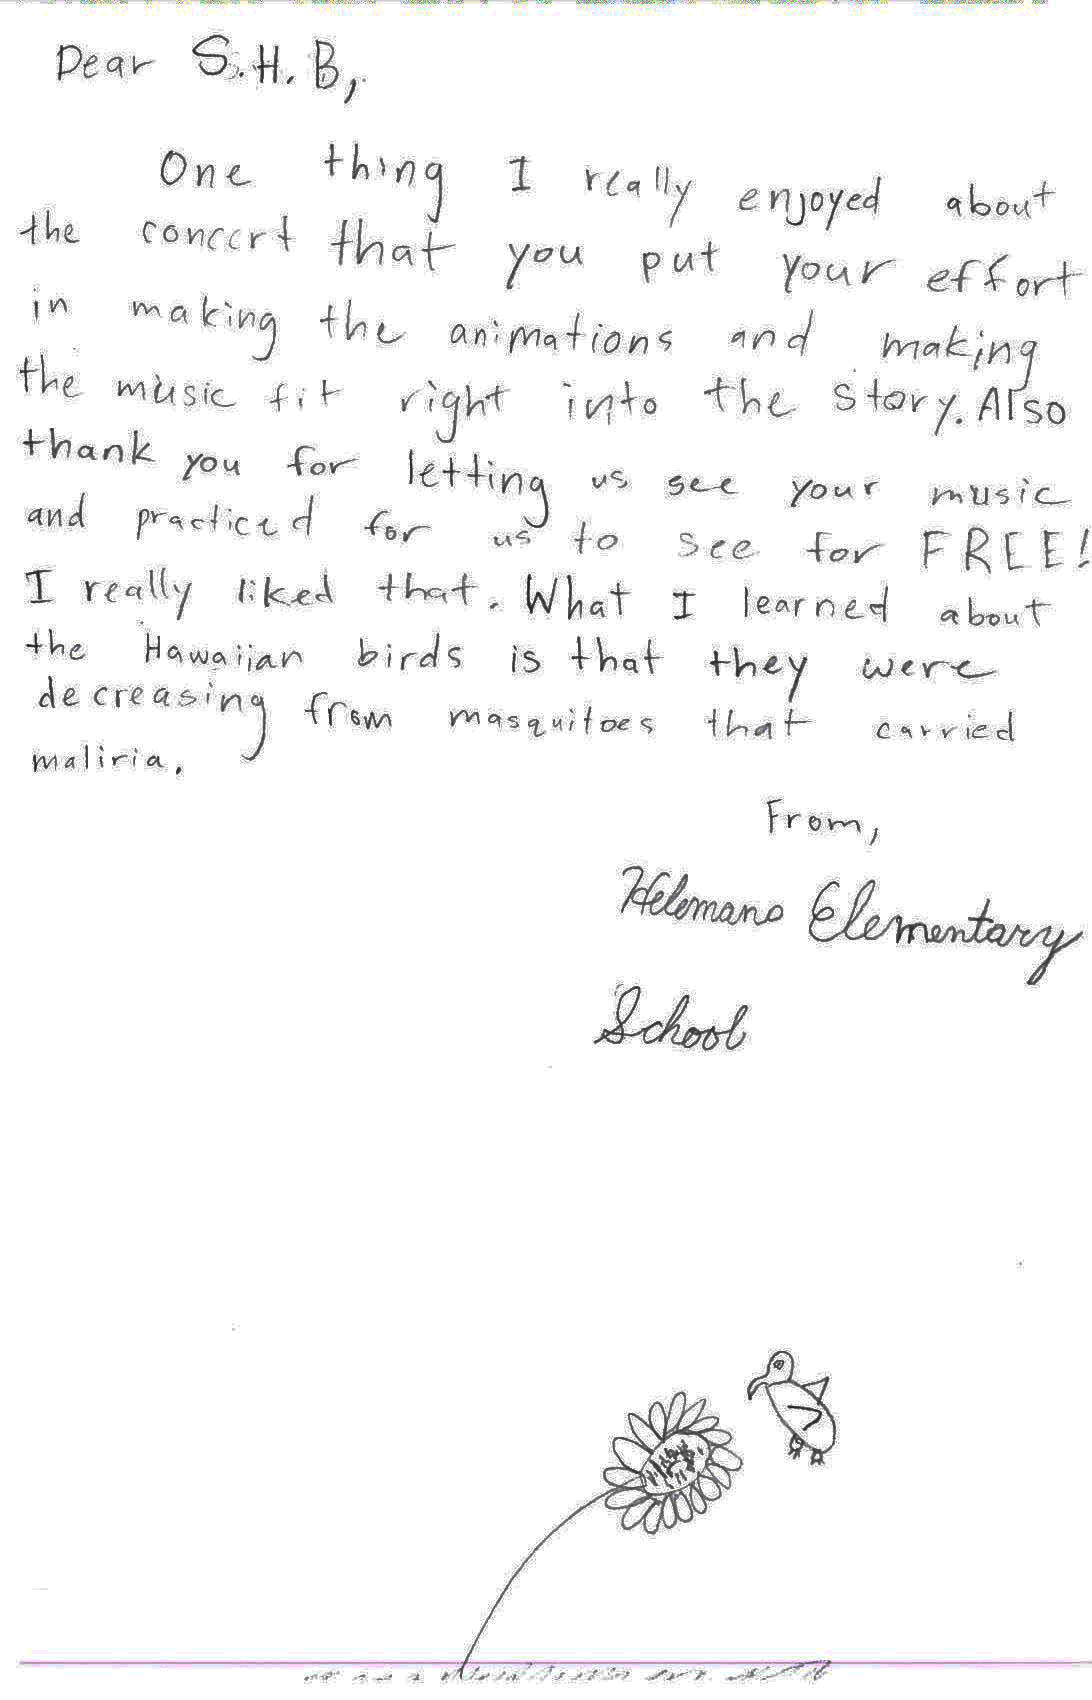 Dear S.H.B,
One thing I really enjoyed about
the concert that you put your effort
in making the animations and making
the music fit right into the story. Also
thank you for letting us see your music
and practiced for us to see for FREE!
I really liked that. What I learned about
the Hawaiian birds is that they were
decreasing from masquitoes that carried
maliria.
From,
Helemano Elementary
School